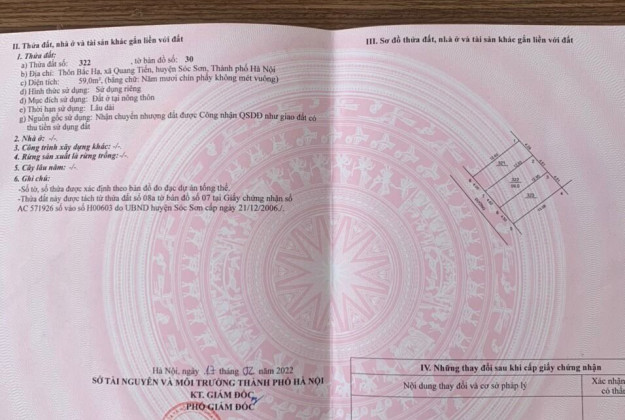 II. Thửa đất, nhà ở và tài sản khác gắn liền với đất
1. Thửa đất:
a) Thửa đất số: 322 , tờ bản đồ số: 30
b) Địa chỉ: Thôn Bắc Hạ, xã Quang Tiến, huyện Sóc Sơn, Thành phố Hà Nội
c) Diện tích: 59,0m², (bằng chữ: Năm mươi chín phẩy không mét vuông)
d) Hình thức sử dụng: Sử dụng riêng
đ) Mục đích sử dụng: Đất ở tại nông thôn
e) Thời hạn sử dụng: Lâu dài
g) Nguồn gốc sử dụng: Nhận chuyển nhượng đất được Công nhận QSDĐ như giao đất có
thu tiền sử dụng đất
2. Nhà ở: -/-
3. Công trình xây dựng khác: -/-
4. Rừng sản xuất là rừng trồng: -/-
5. Cây lâu năm: -/-
6. Ghi chú:
-Số tờ, số thửa được xác định theo bản đồ đo đạc dự án tổng thể.
-Thửa đất này được tách từ thửa đất số 08a tờ bản đồ số 07 tại Giấy chứng nhận số
AC 571926 số vào sổ H00603 do UBND huyện Sóc Sơn cấp ngày 21/12/2006./.
Hà Nội, ngày 17 tháng 02 năm 2022
SỞ TÀI NGUYÊN VÀ MÔI TRƯỜNG THÀNH PHỐ HÀ NỘI
KT. GIÁM ĐỐC
PHÓ GIÁM ĐỐC
III. Sơ đồ thửa đất, nhà ở và tài sản khác gắn liền với đất
322
IV. Những thay đổi sau khi cấp giấy chứng nhận
Nội dung thay đổi và cơ sở pháp lý
Xác nhận
có thẩ